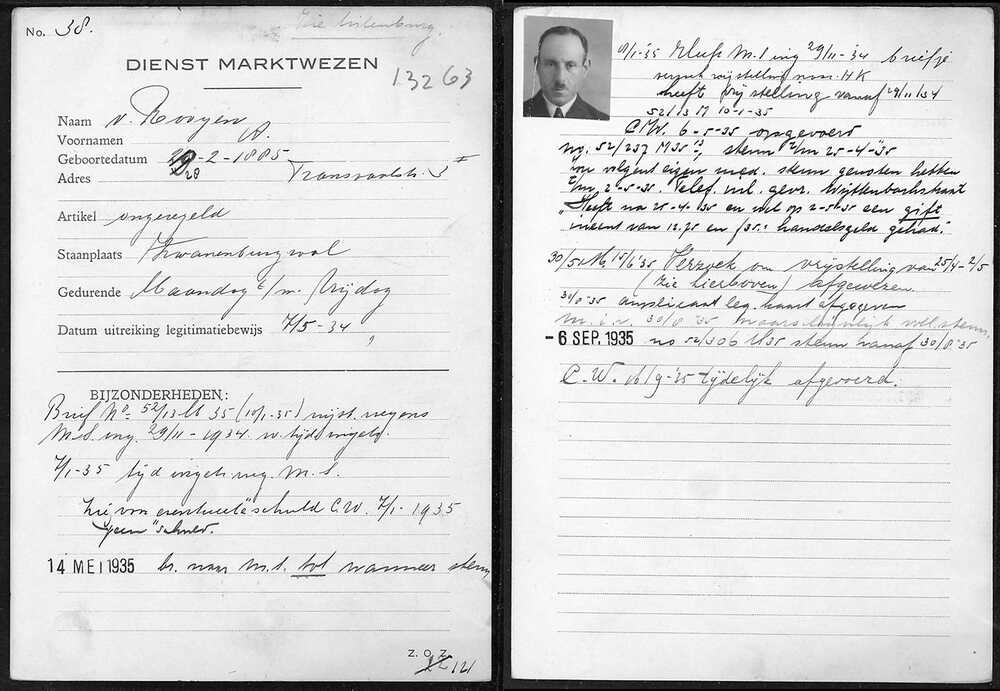 No. 38.
Zie
DIENST MARKTWEZEN
13263
Naam v. Rooyen
Voornamen A.
Geboortedatum -2-1885
28
Adres Transvaalstr. 3 II
Artikel ongeregeld
Staanplaats Zwanenburgwal
Gedurende Maandag t/m. Vrijdag
Datum uitreiking legitimatiebewijs 7/5-34
BIJZONDERHEDEN:
Brief No. 52/13 M 35 (10/1-35) vrijst. wegens
M.S. ing. 29/11-1934 w. tijd. ingetr.
7/1-35 tijd. ingetr. weg. M.S.
Zie voor eventueele schuld C.W. 7/1-1935
"geen" schuld.
14 MEI 1935 br. naar M.S. tot wanneer steun
Z. O. Z.
121
8/1-'35 Heeft M.S ing 29/11-'34 briefje
verzoek vrijstelling
heeft vrijstelling vanaf 29/11/34
52/13 M 10-1-35
C.W. 6-5-35 opgevoerd
no. 52/237 M 35 steun t/m 25-4-35
volgens eigen med. steun genoten hebben
t/m. 2-5-35. Telef. inl. gevr. Wijttenbachstraat
"Heeft na 25-4-35 en wel op 2-5-35 een gift
ineens van 12.75 en f35.- handelsgeld gehad."
30/50 M 15/6'35 Verzoek om vrijstelling van 25/4-2/5
(zie hierboven) afgewezen.
30/8'35 duplicaat leg. kaart afgegeven
M.i.v. 30/8'35 waarschijnlijk wel steun.
-6 SEP. 1935 no 52/306 M35 steun vanaf 30/8'35
C.W. 16/9-35 tijdelijk afgevoerd.